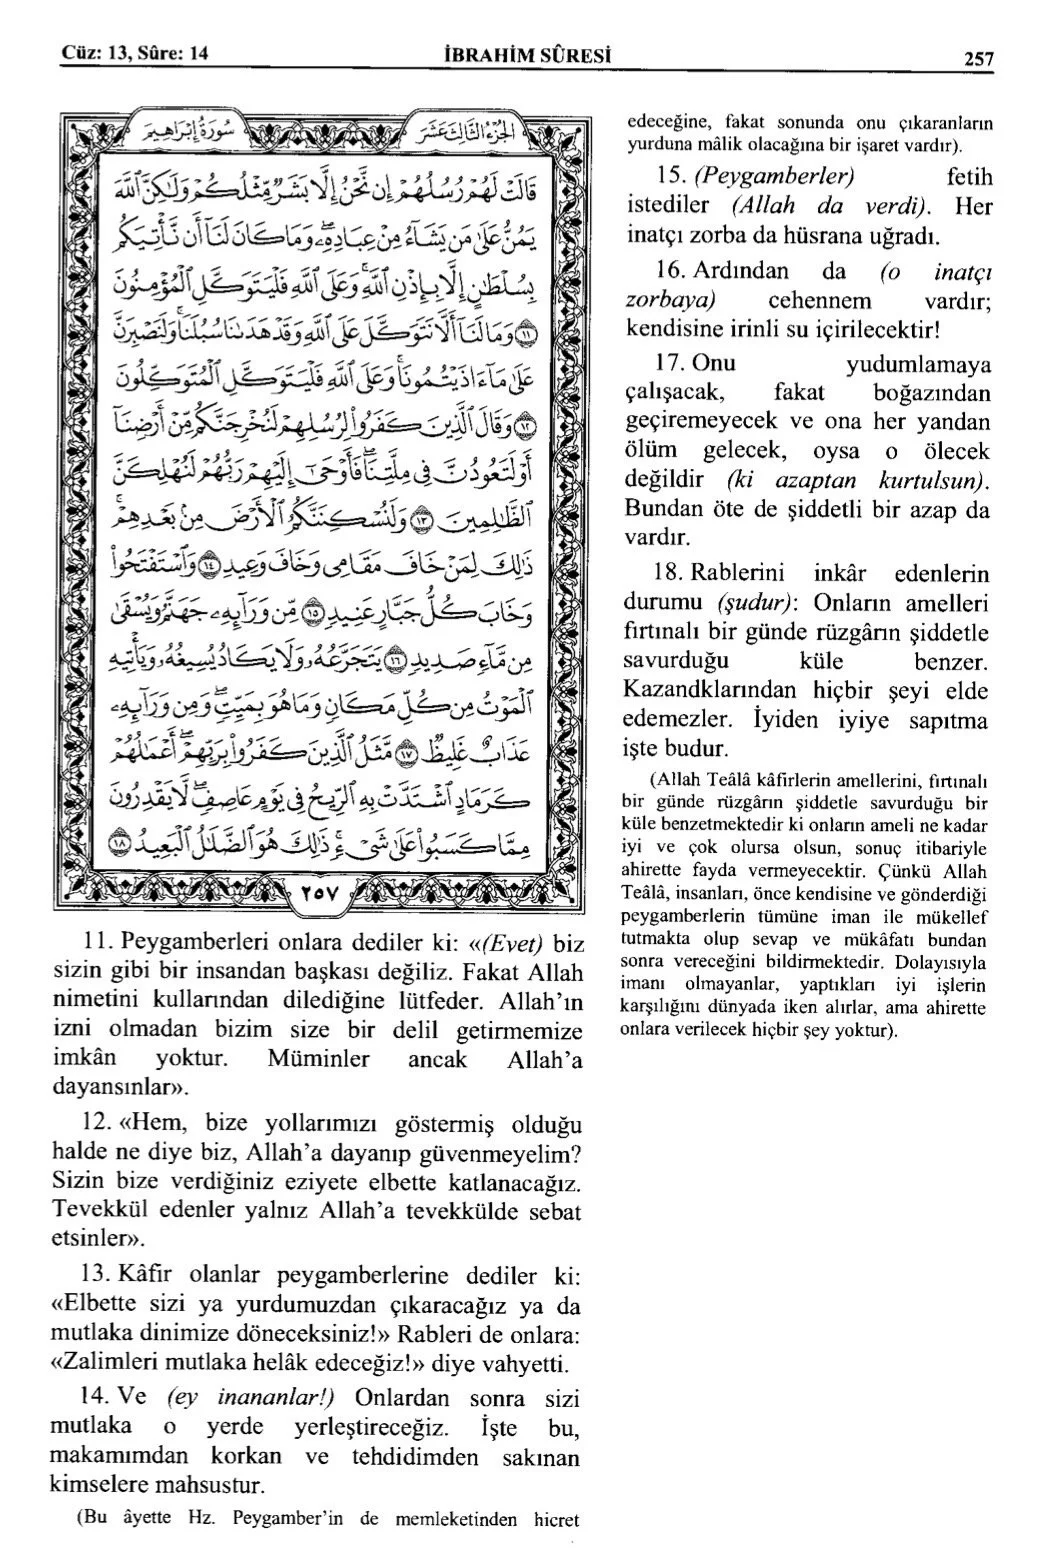 Cüz: 13, Sûre: 14
İBRAHİM SÛRESİ
257
سُورَةُ إِبْرَاهِيمَ
الجُزْءُ الثَّالِثَ عَشَرَ
قَالَتْ لَهُمْ رُسُلُهُمْ إِنْ نَحْنُ إِلَّا بَشَرٌ مِثْلُكُمْ وَلٰكِنَّ اللّٰهَ
يَمُنُّ عَلٰى مَنْ يَشَٓاءُ مِنْ عِبَادِهٖ وَمَا كَانَ لَنَٓا أَنْ نَأْتِيَكُمْ
بِسُلْطَانٍ إِلَّا بِإِذْنِ اللّٰهِ وَعَلَى اللّٰهِ فَلْيَتَوَكَّلِ الْمُؤْمِنُونَ
﴿١١﴾ وَمَا لَنَٓا أَلَّا نَتَوَكَّلَ عَلَى اللّٰهِ وَقَدْ هَدٰينَا سُبُلَنَا وَلَنَصْبِرَنَّ
عَلٰى مَٓا اٰذَيْتُمُونَا وَعَلَى اللّٰهِ فَلْيَتَوَكَّلِ الْمُتَوَكِّلُونَ
﴿١٢﴾ وَقَالَ الَّذِينَ كَفَرُوا لِرُسُلِهِمْ لَنُخْرِجَنَّكُمْ مِنْ أَرْضِنَٓا
أَوْ لَتَعُودُنَّ فِي مِلَّتِنَا فَأَوْحٰٓى إِلَيْهِمْ رَبُّهُمْ لَنُهْلِكَنَّ
الظَّالِمِينَ ﴿١٣﴾ وَلَنُسْكِنَنَّكُمُ الْأَرْضَ مِنْ بَعْدِهِمْ
ذٰلِكَ لِمَنْ خَافَ مَقَامِي وَخَافَ وَعِيدِ ﴿١٤﴾ وَاسْتَفْتَحُوا
وَخَابَ كُلُّ جَبَّارٍ عَنِيدٍ ﴿١٥﴾ مِنْ وَرَٓائِهٖ جَهَنَّمُ وَيُسْقٰى
مِنْ مَٓاءٍ صَدِيدٍ ﴿١٦﴾ يَتَجَرَّعُهُ وَلَا يَكَادُ يُسِيغُهُ وَيَأْتِيهِ
الْمَوْتُ مِنْ كُلِّ مَكَانٍ وَمَا هُوَ بِمَيِّتٍ وَمِنْ وَرَٓائِهٖ
عَذَابٌ غَلِيظٌ ﴿١٧﴾ مَثَلُ الَّذِينَ كَفَرُوا بِرَبِّهِمْ أَعْمَالُهُمْ
كَرَمَادٍ اشْتَدَّتْ بِهِ الرِّيحُ فِي يَوْمٍ عَاصِفٍ لَا يَقْدِرُونَ
مِمَّا كَسَبُوا عَلٰى شَيْءٍ ذٰلِكَ هُوَ الضَّلَالُ الْبَعِيدُ ﴿١٨﴾
٢٥٧
11. Peygamberleri onlara dediler ki: «(Evet) biz
sizin gibi bir insandan başkası değiliz. Fakat Allah
nimetini kullarından dilediğine lütfeder. Allah’ın
izni olmadan bizim size bir delil getirmemize
imkân yoktur. Müminler ancak Allah’a
dayansınlar».
12. «Hem, bize yollarımızı göstermiş olduğu
halde ne diye biz, Allah’a dayanıp güvenmeyelim?
Sizin bize verdiğiniz eziyete elbette katlanacağız.
Tevekkül edenler yalnız Allah’a tevekkülde sebat
etsinler».
13. Kâfir olanlar peygamberlerine dediler ki:
«Elbette sizi ya yurdumuzdan çıkaracağız ya da
mutlaka dinimize döneceksiniz!» Rableri de onlara:
«Zalimleri mutlaka helâk edeceğiz!» diye vahyetti.
14. Ve (ey inananlar!) Onlardan sonra sizi
mutlaka o yerde yerleştireceğiz. İşte bu,
makamımdan korkan ve tehdidimden sakınan
kimselere mahsustur.
(Bu âyette Hz. Peygamber’in de memleketinden hicret
edeceğine, fakat sonunda onu çıkaranların
yurduna mâlik olacağına bir işaret vardır).
15. (Peygamberler) fetih
istediler (Allah da verdi). Her
inatçı zorba da hüsrana uğradı.
16. Ardından da (o inatçı
zorbaya) cehennem vardır;
kendisine irinli su içirilecektir!
17. Onu yudumlamaya
çalışacak, fakat boğazından
geçiremeyecek ve ona her yandan
ölüm gelecek, oysa o ölecek
değildir (ki azaptan kurtulsun).
Bundan öte de şiddetli bir azap da
vardır.
18. Rablerini inkâr edenlerin
durumu (şudur): Onların amelleri
fırtınalı bir günde rüzgârın şiddetle
savurduğu küle benzer.
Kazandklarından hiçbir şeyi elde
edemezler. İyiden iyiye sapıtma
işte budur.
(Allah Teâlâ kâfirlerin amellerini, fırtınalı
bir günde rüzgârın şiddetle savurduğu bir
küle benzetmektedir ki onların ameli ne kadar
iyi ve çok olursa olsun, sonuç itibariyle
ahirette fayda vermeyecektir. Çünkü Allah
Teâlâ, insanları, önce kendisine ve gönderdiği
peygamberlerin tümüne iman ile mükellef
tutmakta olup sevap ve mükâfatı bundan
sonra vereceğini bildirmektedir. Dolayısıyla
imanı olmayanlar, yaptıkları iyi işlerin
karşılığını dünyada iken alırlar, ama ahirette
onlara verilecek hiçbir şey yoktur).